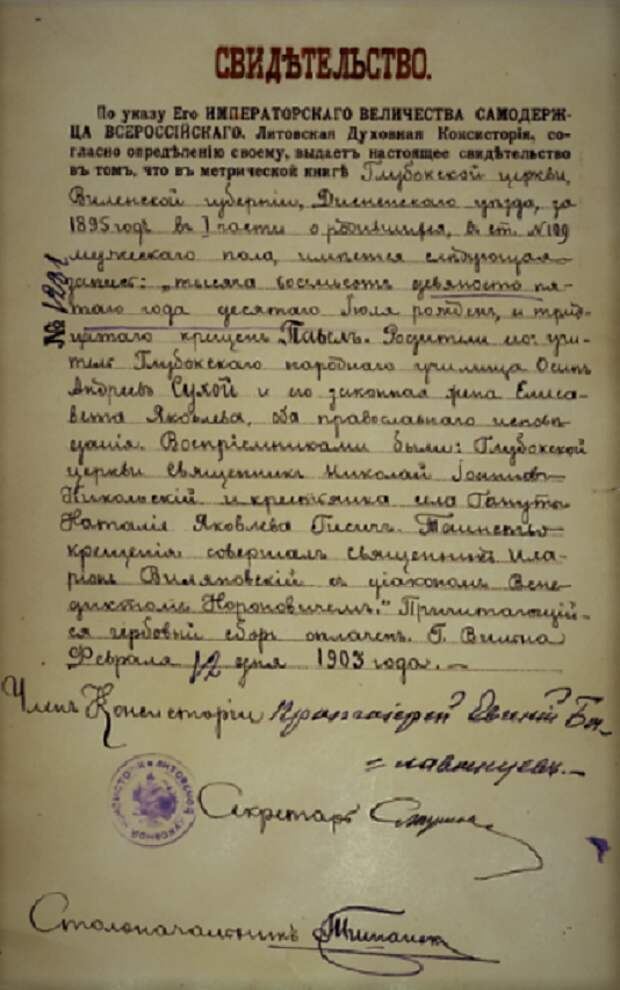 СВИДѢТЕЛЬСТВО.
По указу Его ИМПЕРАТОРСКАГО ВЕЛИЧЕСТВА САМОДЕРЖ-
ЦА ВСЕРОССІЙСКАГО, Литовская Духовная Консисторія, со-
гласно опредѣленію своему, выдаетъ настоящее свидѣтельство
въ томъ, что въ метрической книгѣ Глубокской церкви,
Виленской губерніи, Дисненскаго уѣзда, за
1895 годъ въ I части о родившихся, въ ст. №109
мужескаго пола, имѣется слѣдующая
запись: „тысяча восемьсотъ девяносто пя-
таго года десятаго Іюля рожденъ, и трид-
цатаго крещенъ Павелъ. Родители его: учи-
тель Глубокскаго народнаго училища Осипъ
Андреевъ Сухой и его законная жена Елиса-
вета Яковлева, оба православнаго исповѣ-
данія. Воспріемниками были: Глубокской
церкви Священникъ Николай Іоанновъ
Никольскій и крестьянка села
Наталія Яковлева Гисичъ. Таинство
крещенія совершалъ священникъ Ила-
ріонъ Виляновскій съ діакономъ Вене-
диктомъ Нороновичемъ." Причитающій-
ся гербовый сборъ оплаченъ. Г. Вильна
Февраля 12 дня 1903 года.
№ 1291
Членъ Консисторіи
Секретарь
Столоначальникъ